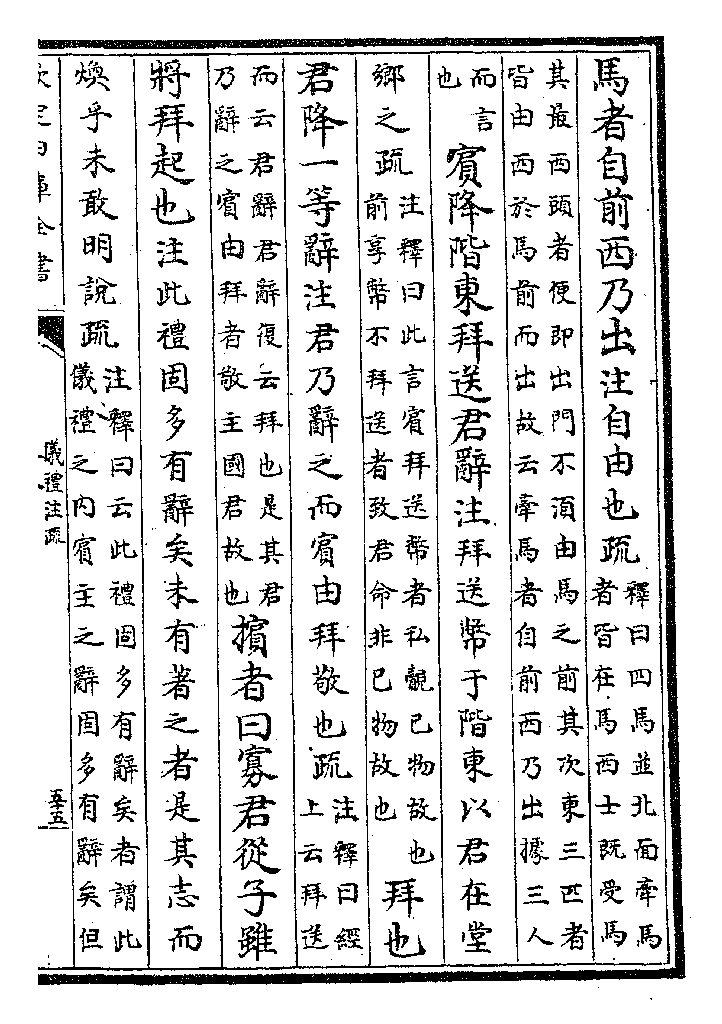 馬者自前西乃出注自由也疏釋曰四馬並北面牽馬者皆在馬西士既受馬
其最西頭者便即出門不須由馬之前其次東三匹者皆由西於馬前而出故云牽馬者自前西乃出據三人
而言也賓降階東拜送君辭注拜送幣于階東以君在堂
鄉之疏注釋曰此言賓拜送幣者私覿己物故也前享幣不拜送者致君命非己物故也拜也
君降一等辭注君乃辭之而賓由拜敬也疏注釋曰經上云拜送
而云君辭君辭復云拜也是其君乃辭之賓由拜者敬主國君故也擯者曰寡君從子雖
將拜起也注此禮固多有辭矣未有著之者是其志而
煥乎未敢明說疏注釋曰云此禮固多有辭矣者謂此儀禮之內賓主之辭固多有辭矣但
欽定四庫全書
儀禮注疏
五十五